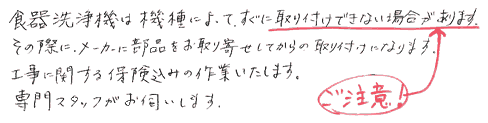 食器洗浄機は機種によって、すぐに取り付けできない場合があります。
その際に、メーカーに部品をお取り寄せしてからの取り付けになります。
工事に関する保険込みの作業いたします。
専門スタッフがお伺いします。
ご注意!